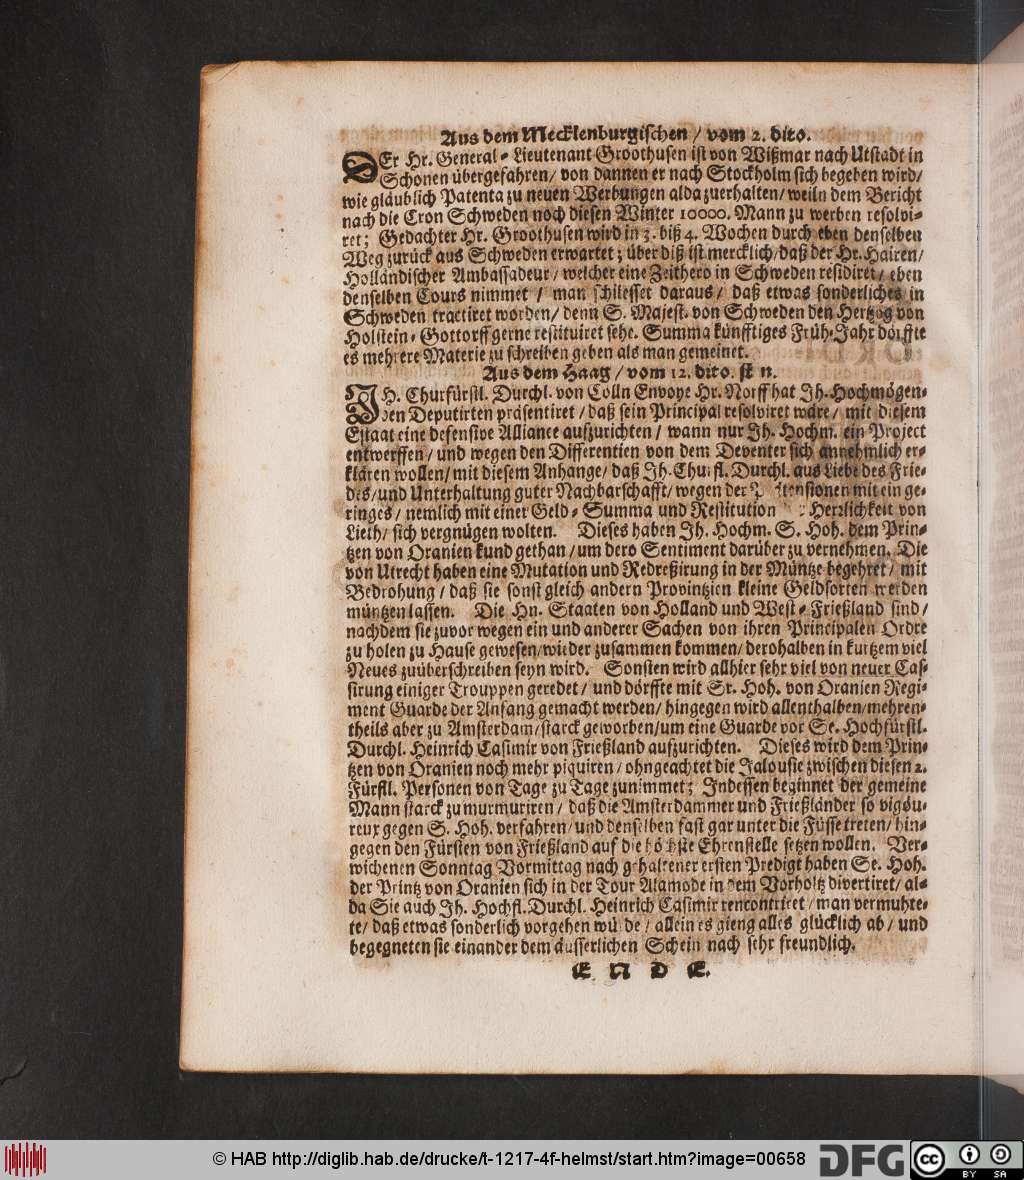 Aus dem Mecklenburgischen / vom 2. dito.
DEr Hr. General-Lieutenant Groothusen ist von Wißmar nach Utstadt in
Schonen übergefahren/ von dannen er nach Stockholm sich begeben wird/
wie gläublich Patenta zu neuen Werbungen alda zuerhalten/ weiln dem Bericht
nach die Cron Schweden noch diesen Winter 10000. Mann zu werben resolvi-
ret; Gedachter Hr. Groothusen wird in 3. biß 4. Wochen durch eben denselben
Weg zurück aus Schweden erwartet; über diß ist mercklich/ daß der Hr. Hairen/
Holländischer Ambassadeur/ welcher eine Zeithero in Schweden residiret/ eben
denselben Cours nimmet / man schliesset daraus/ daß etwas sonderliches in
Schweden tractiret worden/ denn S. Majest. von Schweden den Hertzog von
Holstein-Gottorff gerne restituiret sehe. Summa künfftiges Früh-Jahr dörffte
es mehrere Materie zu schreiben geben als man gemeinet.
Aus dem Haag / vom 12. dito. st n.
IH. Churfürstl. Durchl. von Cölln Envoye Hr. Norff hat Ih. Hochmögen-
den Deputirten präsentiret / daß sein Principal resolviret wäre / mit diesem
Estaat eine defensive Alliance aufzurichten / wann nur Ih. Hochm. ein Project
entwerffen / und wegen den Differentien von dem Deventer sich annehmlich er-
klären wollen/ mit diesem Anhange/ daß Ih. Churfl. Durchl. aus Liebe des Frie-
des/ und Unterhaltung guter Nachbarschafft/ wegen der mit ein ge-
ringes / nemlich mit einer Geld-Summa und Restitution Herrlichkeit von
Lieth/ sich vergnügen wolten. Dieses haben Ih. Hochm. S. Hoh. dem Prin-
tzen von Oranien kund gethan / um dero Sentiment darüber zu vernehmen. Die
von Utrecht haben eine Mutation und Redreßirung in der Müntze begehret / mit
Bedrohung / daß sie sonst gleich andern Provintzien kleine Geldsorten werden
müntzen lassen. Die Hn. Staaten von Holland und West-Frießland sind /
nachdem sie zuvor wegen ein und anderer Sachen von ihren Principalen Ordre
zu holen zu Hause gewesen/ wieder zusammen kommen/ derohalben in kurtzem viel
Neues zuüberschreiben seyn wird. Sonsten wird allhier sehr viel von neuer Cas-
sirung einiger Trouppen geredet / und dörffte mit Sr. Hoh. von Oranien Regi-
ment Guarde der Anfang gemacht werden/ hingegen wird allenthalben/ mehren-
theils aber zu Amsterdam/ starck geworben/ um eine Guarde vor Se. Hochfürstl.
Durchl. Heinrich Casimir von Frießland aufzurichten. Dieses wird dem Prin-
tzen von Oranien noch mehr piquiren / ohngeachtet die Jalousie zwischen diesen 2.
Fürstl. Personen von Tage zu Tage zunimmet; Indessen beginnet der gemeine
Mann starck zu murmuriren / daß die Amsterdammer und Frießländer so vigou-
reux gegen S. Hoh. verfahren/ und denselben fast gar unter die Füsse treten/ hin-
gegen den Fürsten von Frießland auf die höchste Ehrenstelle setzen wollen. Ver-
wichenen Sonntag Vormittag nach gehaltener ersten Predigt haben Se. Hoh.
der Printz von Oranien sich in der Tour Alamode in dem Vorholtz divertiret/ al-
da Sie auch Ih. Hochfl. Durchl. Heinrich Casimir rencontriret / man vermuhte-
te/ daß etwas sonderlich vorgehen würde / allein es gieng alles glücklich ab / und
begegneten sie einander dem äusserlichen Schein nach sehr freundlich.
E N D E.
© HAB http://diglib.hab.de/drucke/t-1217-4f-helmst/start.htm?image=00658
DFG
cc BY SA